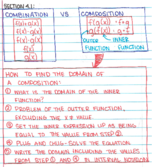 SECTION 4.1:
COMBINATION VS COMPOSITION
f(x)+g(x)
f(x)-g(x)
f(x)·g(x)
f(x)
g(x)
f(g(x)) - f∘g
g(f(x)) - g∘f
OUTER INNER
FUNCTION FUNCTION
HOW TO FIND THE DOMAIN OF
A COMPOSITION:
① WHAT IS THE DOMAIN OF THE INNER
FUNCTION?
② PROBLEM OF THE OUTER FUNCTION,
EXCLUDING THE X VALUE
③ SET THE INNER EXPRESSION UP AS BEING
EQUAL TO THE VALUES FROM STEP ②.
④ PLUG AND CHUG-SOLVE THE EQUATION
⑤ WRITE THE DOMAIN INCLUDING THE VALUES
FROM STEP ① AND ③ IN INTERVAL NOTATION